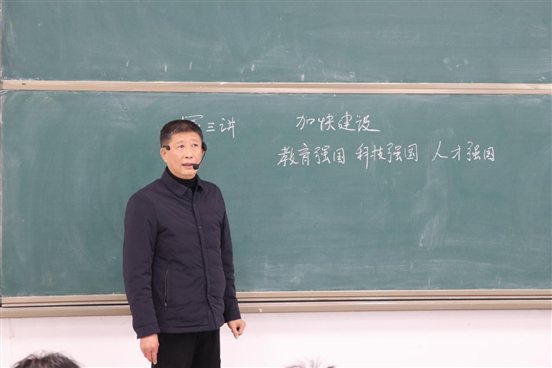 三讲 加快建设
教育强国 科技强国 人才强国